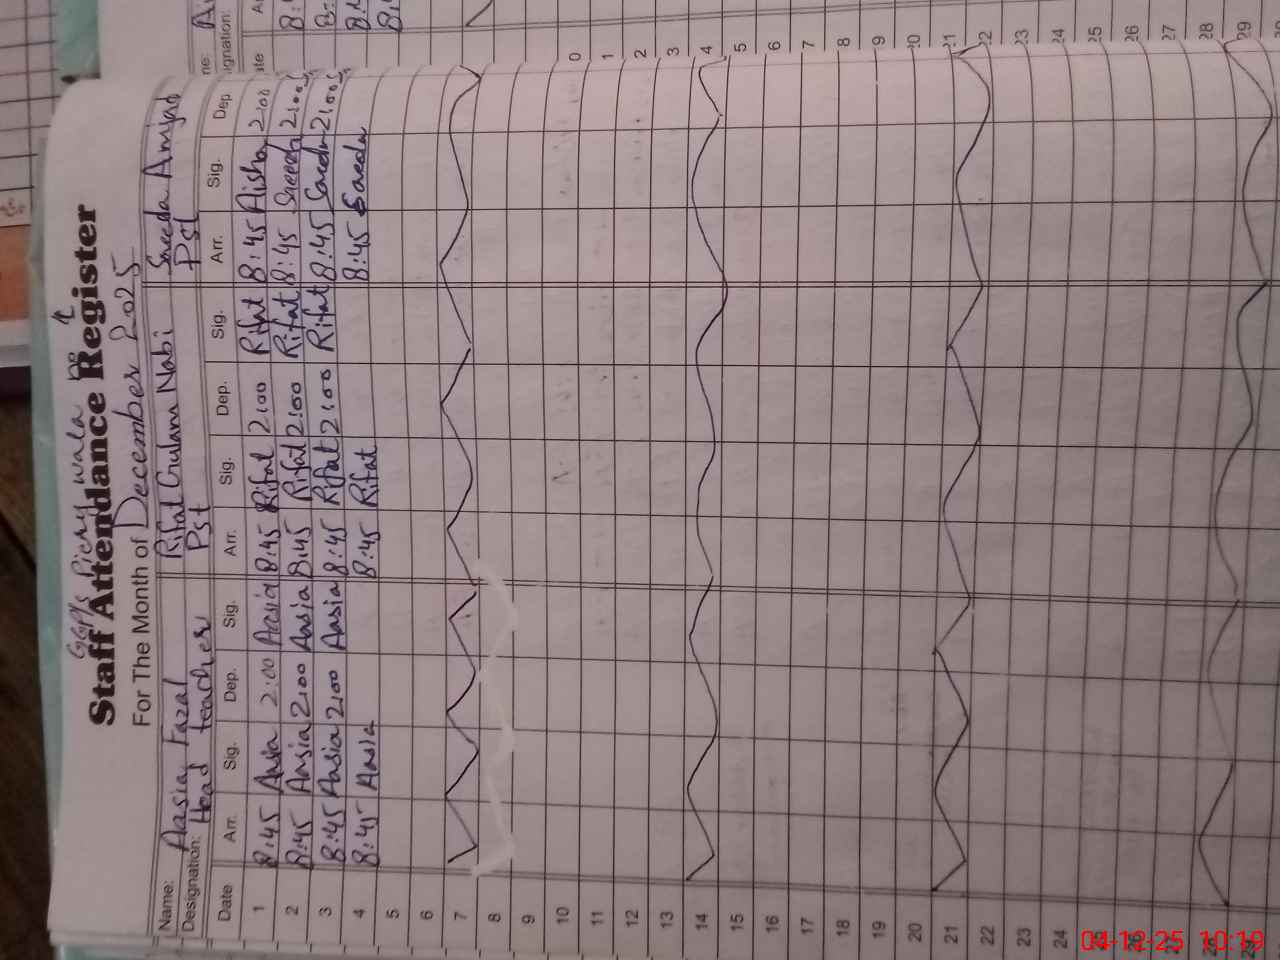 GGPS Piery wala no 1
Staff Attendance Register
For The Month of December 2025
Name: Aasia Fazal Rifat Gulam Nabi Saeeda Amjad
Designation: Head teacher Pst Pst
Date Arr. Sig. Dep. Sig. Arr. Sig. Dep. Sig. Arr. Sig. Dep
1 8:45 Aasia 2:00 Aasia 8:45 Rifat 2:00 Rifat 8:45 Aisha 2:00
2 8:45 Aasia 2:00 Aasia 8:45 Rifat 2:00 Rifat 8:45 Saeeda 2:00
3 8:45 Aasia 2:00 Aasia 8:45 Rifat 2:00 Rifat 8:45 Saeeda 2:00
4 8:45 Aasia 8:45 Rifat 8:45 Saeeda
5
6
7
8
9
10
11
12
13
14
15
16
17
18
19
20
21
22
23
24
25
26
27
28
29
04-12-25 10:19